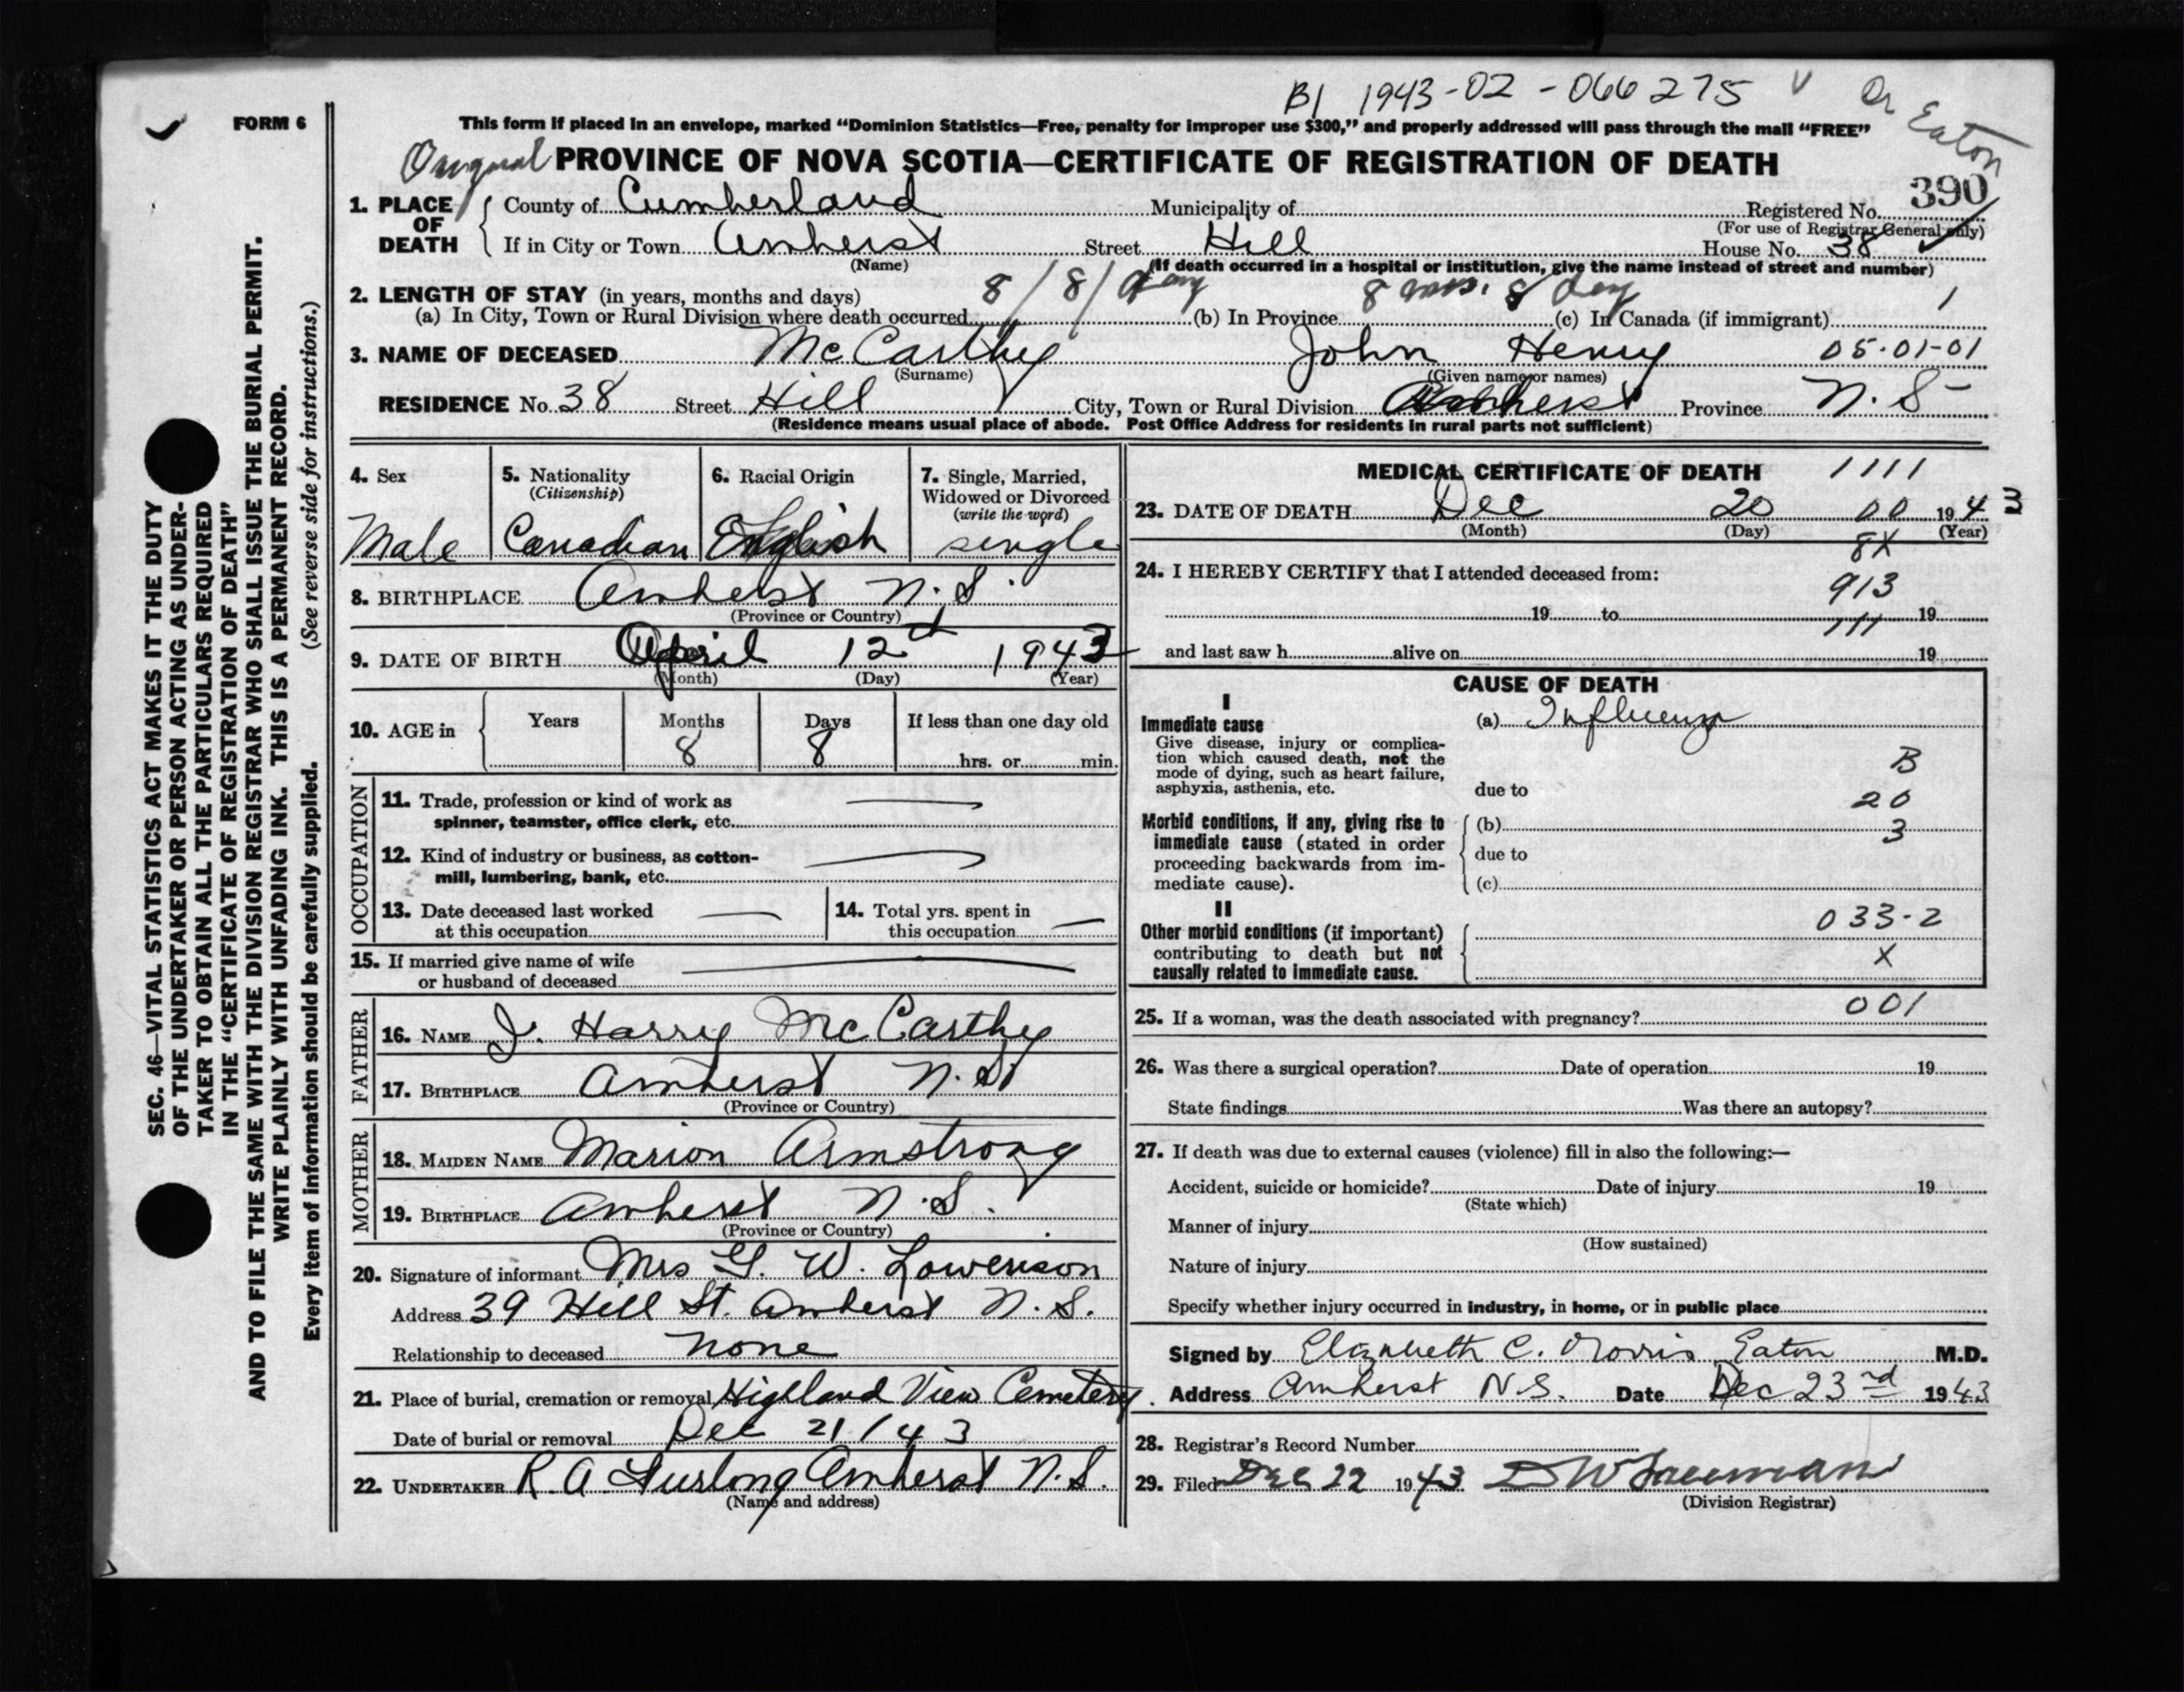 B/ 1943-02-066275 v Dr Eaton
FORM 6
This form if placed in an envelope, marked “Dominion Statistics—Free, penalty for improper use $300,” and properly addressed will pass through the mail “FREE”
Original PROVINCE OF NOVA SCOTIA—CERTIFICATE OF REGISTRATION OF DEATH
390
1. PLACE OF DEATH
County of Cumberland Municipality of Registered No.
(For use of Registrar General only)
If in City or Town Amherst Street Hill House No. 38
(Name) (If death occurred in a hospital or institution, give the name instead of street and number)
2. LENGTH OF STAY (in years, months and days) 8/8/day 8 mos. 8 day
(a) In City, Town or Rural Division where death occurred (b) In Province (c) In Canada (if immigrant) 1
3. NAME OF DECEASED McCarthy John Henry 05-01-01
(Surname) (Given name or names)
RESIDENCE No. 38 Street Hill City, Town or Rural Division Amherst Province N.S-
(Residence means usual place of abode. Post Office Address for residents in rural parts not sufficient)
4. Sex 5. Nationality 6. Racial Origin 7. Single, Married,
(Citizenship) Widowed or Divorced
(write the word)
Male Canadian English single
8. BIRTHPLACE Amherst N.S.
(Province or Country)
9. DATE OF BIRTH April 12 1943
(Month) (Day) (Year)
10. AGE in Years Months Days If less than one day old
8 8 hrs. or min.
OCCUPATION
11. Trade, profession or kind of work as
spinner, teamster, office clerk, etc. —
12. Kind of industry or business, as cotton-
mill, lumbering, bank, etc. —
13. Date deceased last worked
at this occupation —
14. Total yrs. spent in
this occupation —
15. If married give name of wife
or husband of deceased —
FATHER
16. NAME J. Harry McCarthy
17. BIRTHPLACE Amherst N.S
(Province or Country)
MOTHER
18. MAIDEN NAME Marion Armstrong
19. BIRTHPLACE Amherst N.S.
(Province or Country)
20. Signature of informant Mrs G. W. Lowerison
Address 39 Hill St. Amherst N.S.
Relationship to deceased none
21. Place of burial, cremation or removal Highland View Cemetery.
Date of burial or removal Dec 21/43
22. UNDERTAKER R. A. Furlong Amherst N.S.
(Name and address)
MEDICAL CERTIFICATE OF DEATH 1111
23. DATE OF DEATH Dec 20 00 1943
(Month) (Day) (Year)
8X
24. I HEREBY CERTIFY that I attended deceased from:
913
19 to 19
111
and last saw h alive on 19
CAUSE OF DEATH
I
Immediate cause (a) Influenza
Give disease, injury or complica-
tion which caused death, not the
mode of dying, such as heart failure,
asphyxia, asthenia, etc. due to
B
20
3
Morbid conditions, if any, giving rise to
immediate cause (stated in order
proceeding backwards from im-
mediate cause).
(b)
due to
(c)
II
Other morbid conditions (if important)
contributing to death but not
causally related to immediate cause.
033-2
X
001
25. If a woman, was the death associated with pregnancy?
26. Was there a surgical operation? Date of operation 19
State findings Was there an autopsy?
27. If death was due to external causes (violence) fill in also the following:—
Accident, suicide or homicide? Date of injury 19
(State which)
Manner of injury
(How sustained)
Nature of injury
Specify whether injury occurred in industry, in home, or in public place
Signed by Elizabeth C. Morris Eaton M.D.
Address Amherst N.S. Date Dec 23rd 1943
28. Registrar's Record Number
29. Filed Dec 22 1943
(Division Registrar)
SEC. 46—VITAL STATISTICS ACT MAKES IT THE DUTY
OF THE UNDERTAKER OR PERSON ACTING AS UNDER-
TAKER TO OBTAIN ALL THE PARTICULARS REQUIRED
IN THE “CERTIFICATE OF REGISTRATION OF DEATH”
AND TO FILE THE SAME WITH THE DIVISION REGISTRAR WHO SHALL ISSUE THE BURIAL PERMIT.
WRITE PLAINLY WITH UNFADING INK. THIS IS A PERMANENT RECORD.
Every item of information should be carefully supplied. (See reverse side for instructions.)